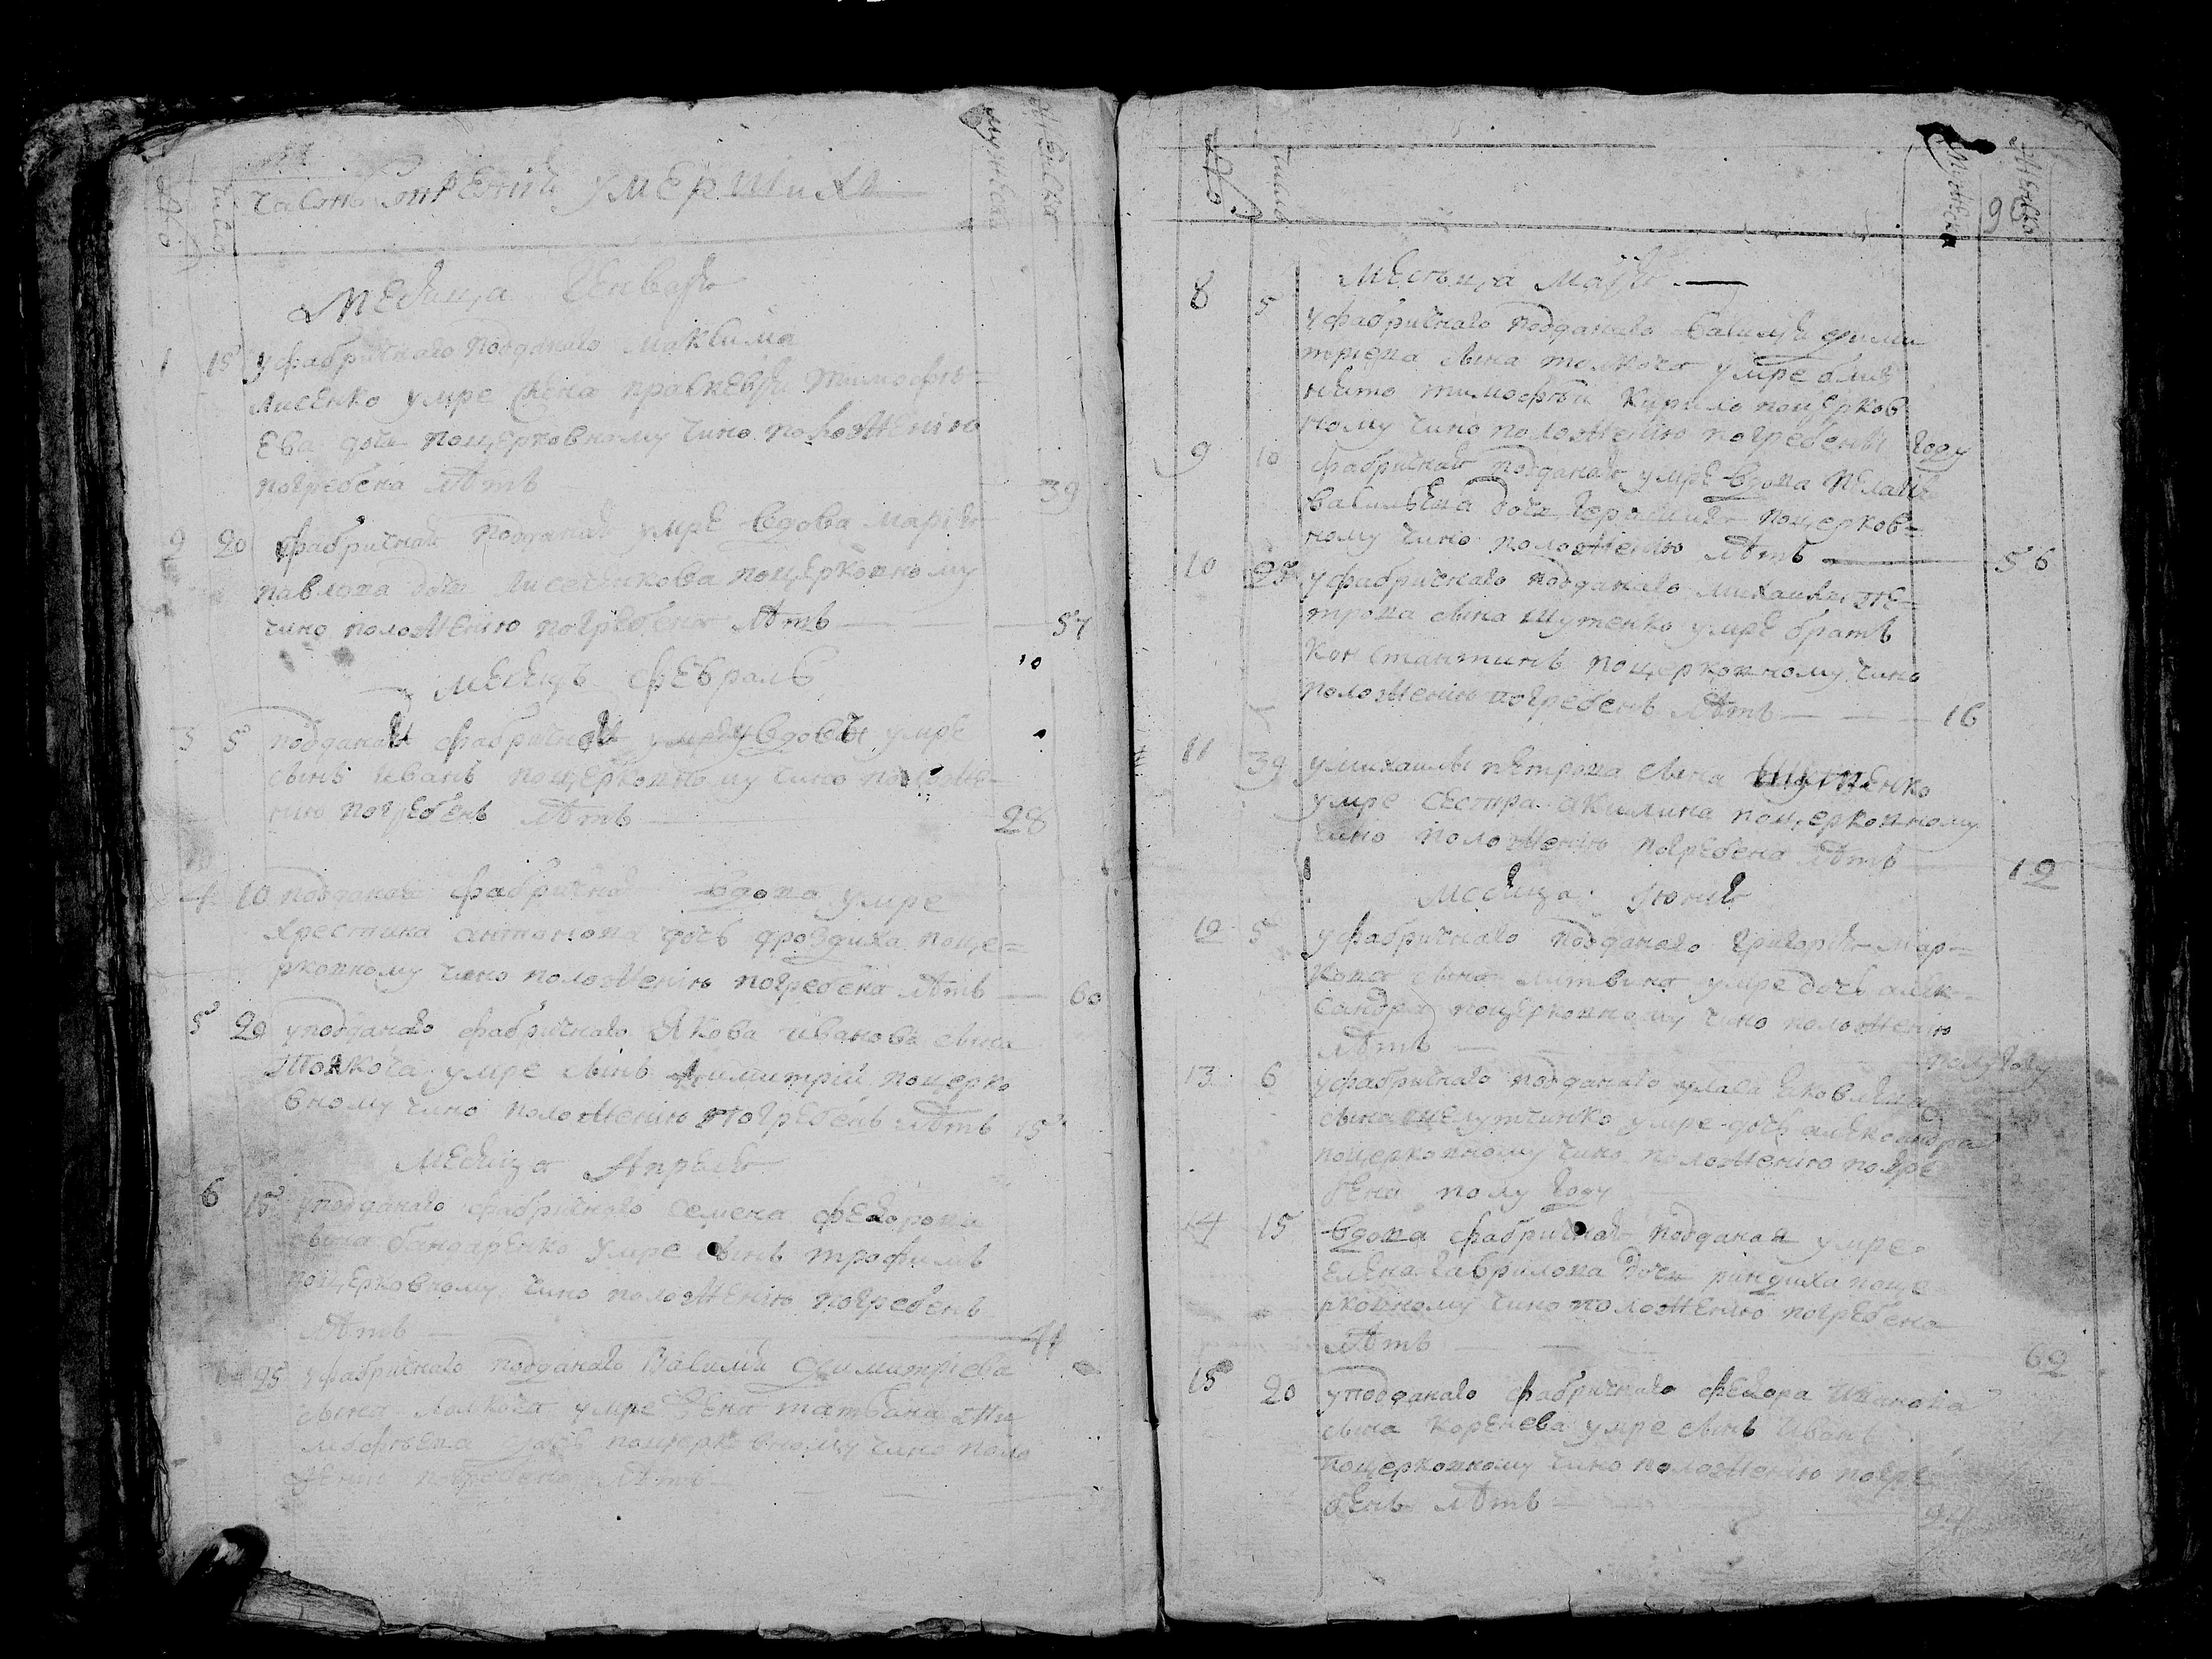 №
число
часть третия умершихъ
мужеска
женска
Месяца Генваря
1 15 у фабричнаго подданаго Максима
Лисенко умре жена Тимофѣ=
ева дочь поцерковному чино положению
погребена лѣтъ 39
2 20 фабричная подданая умре вдова Мария
Павлова дочь поцерковному
чино положению погребена лѣтъ 57
Месецъ Февраль
3 5 подданой фабричной вдовы умре
сынъ Иванъ поцерковному чино положе=
нию погребенъ лѣтъ 28
4 10 поддана фабрична вдова умре
Хрестина Антонова дочь Дроздиха поце=
рковному чино положению погребена лѣтъ 60
5 29 у подданаго фабричнаго Якова Иванова сына
Толкоча умре сынъ Димитрий поцерко
вному чино положению погребенъ лѣтъ 15
Месяца Апреля
6 15 у подданаго фабричнаго Семена Федорова
сына Бандаренко умре сынъ Трофимъ
поцерковному чино положению погребенъ
лѣтъ 44
25 у фабричнаго подданаго Василия Димитриева
сына умре жена Татьяна Ти
мофѣева дочь поцерковному чино поло
жению погребена лѣтъ
№
число
мужеска
женска
Месеца Майя
8 5 у фабричнаго подданаго Василия Дими
триева сына Толкоча умре
Тимофѣй Кирило поцерков
ному чино положению погребены году
9 10 фабричная подданая умре вдова Пелагия
Васильева дочь поцерков=
ному чино положению лѣтъ 56
10 25 у фабричнаго подданаго Михаила Пе=
трова сына Шутенко умре братъ
Константинъ поцерковному чино
положению погребенъ лѣтъ 16
11 39 у Михаилы Петрова сына
умре сестра Акилина поцерковному
чино положению погребена лѣтъ 12
Месяца Июня
12 5 у фабричнаго подданаго Григория Мар=
кова сына Литвина умре дочь Алек=
сандра поцерковному чино положению
лѣтъ полугоду
13 6 у фабричнаго подданаго Яковлева
сына умре дочь Александра
поцерковному чино положению погре
бена полу году
14 15 вдова фабричная подданая умре
Елена Гаврилова дочь поце
рковному чино положению погребена
лѣтъ 62
15 20 у подданаго фабричнаго Федора Иванова
сына Коренева умре сынъ Иванъ
поцерковному чино положению погре
бенъ лѣтъ